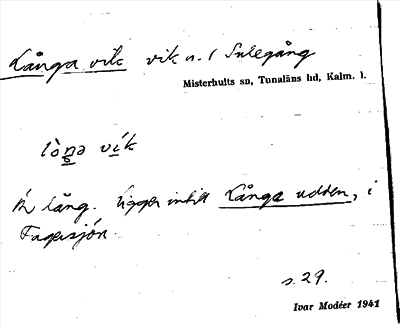 Långa vik vik n. i Sulegång
Misterhults sn, Tunaläns hd, Kalm. l.
lòŋə vík
Är lång. Ligger intill Långa udden, i
Fagersjön.
s. 29.
Ivar Modéer 1941